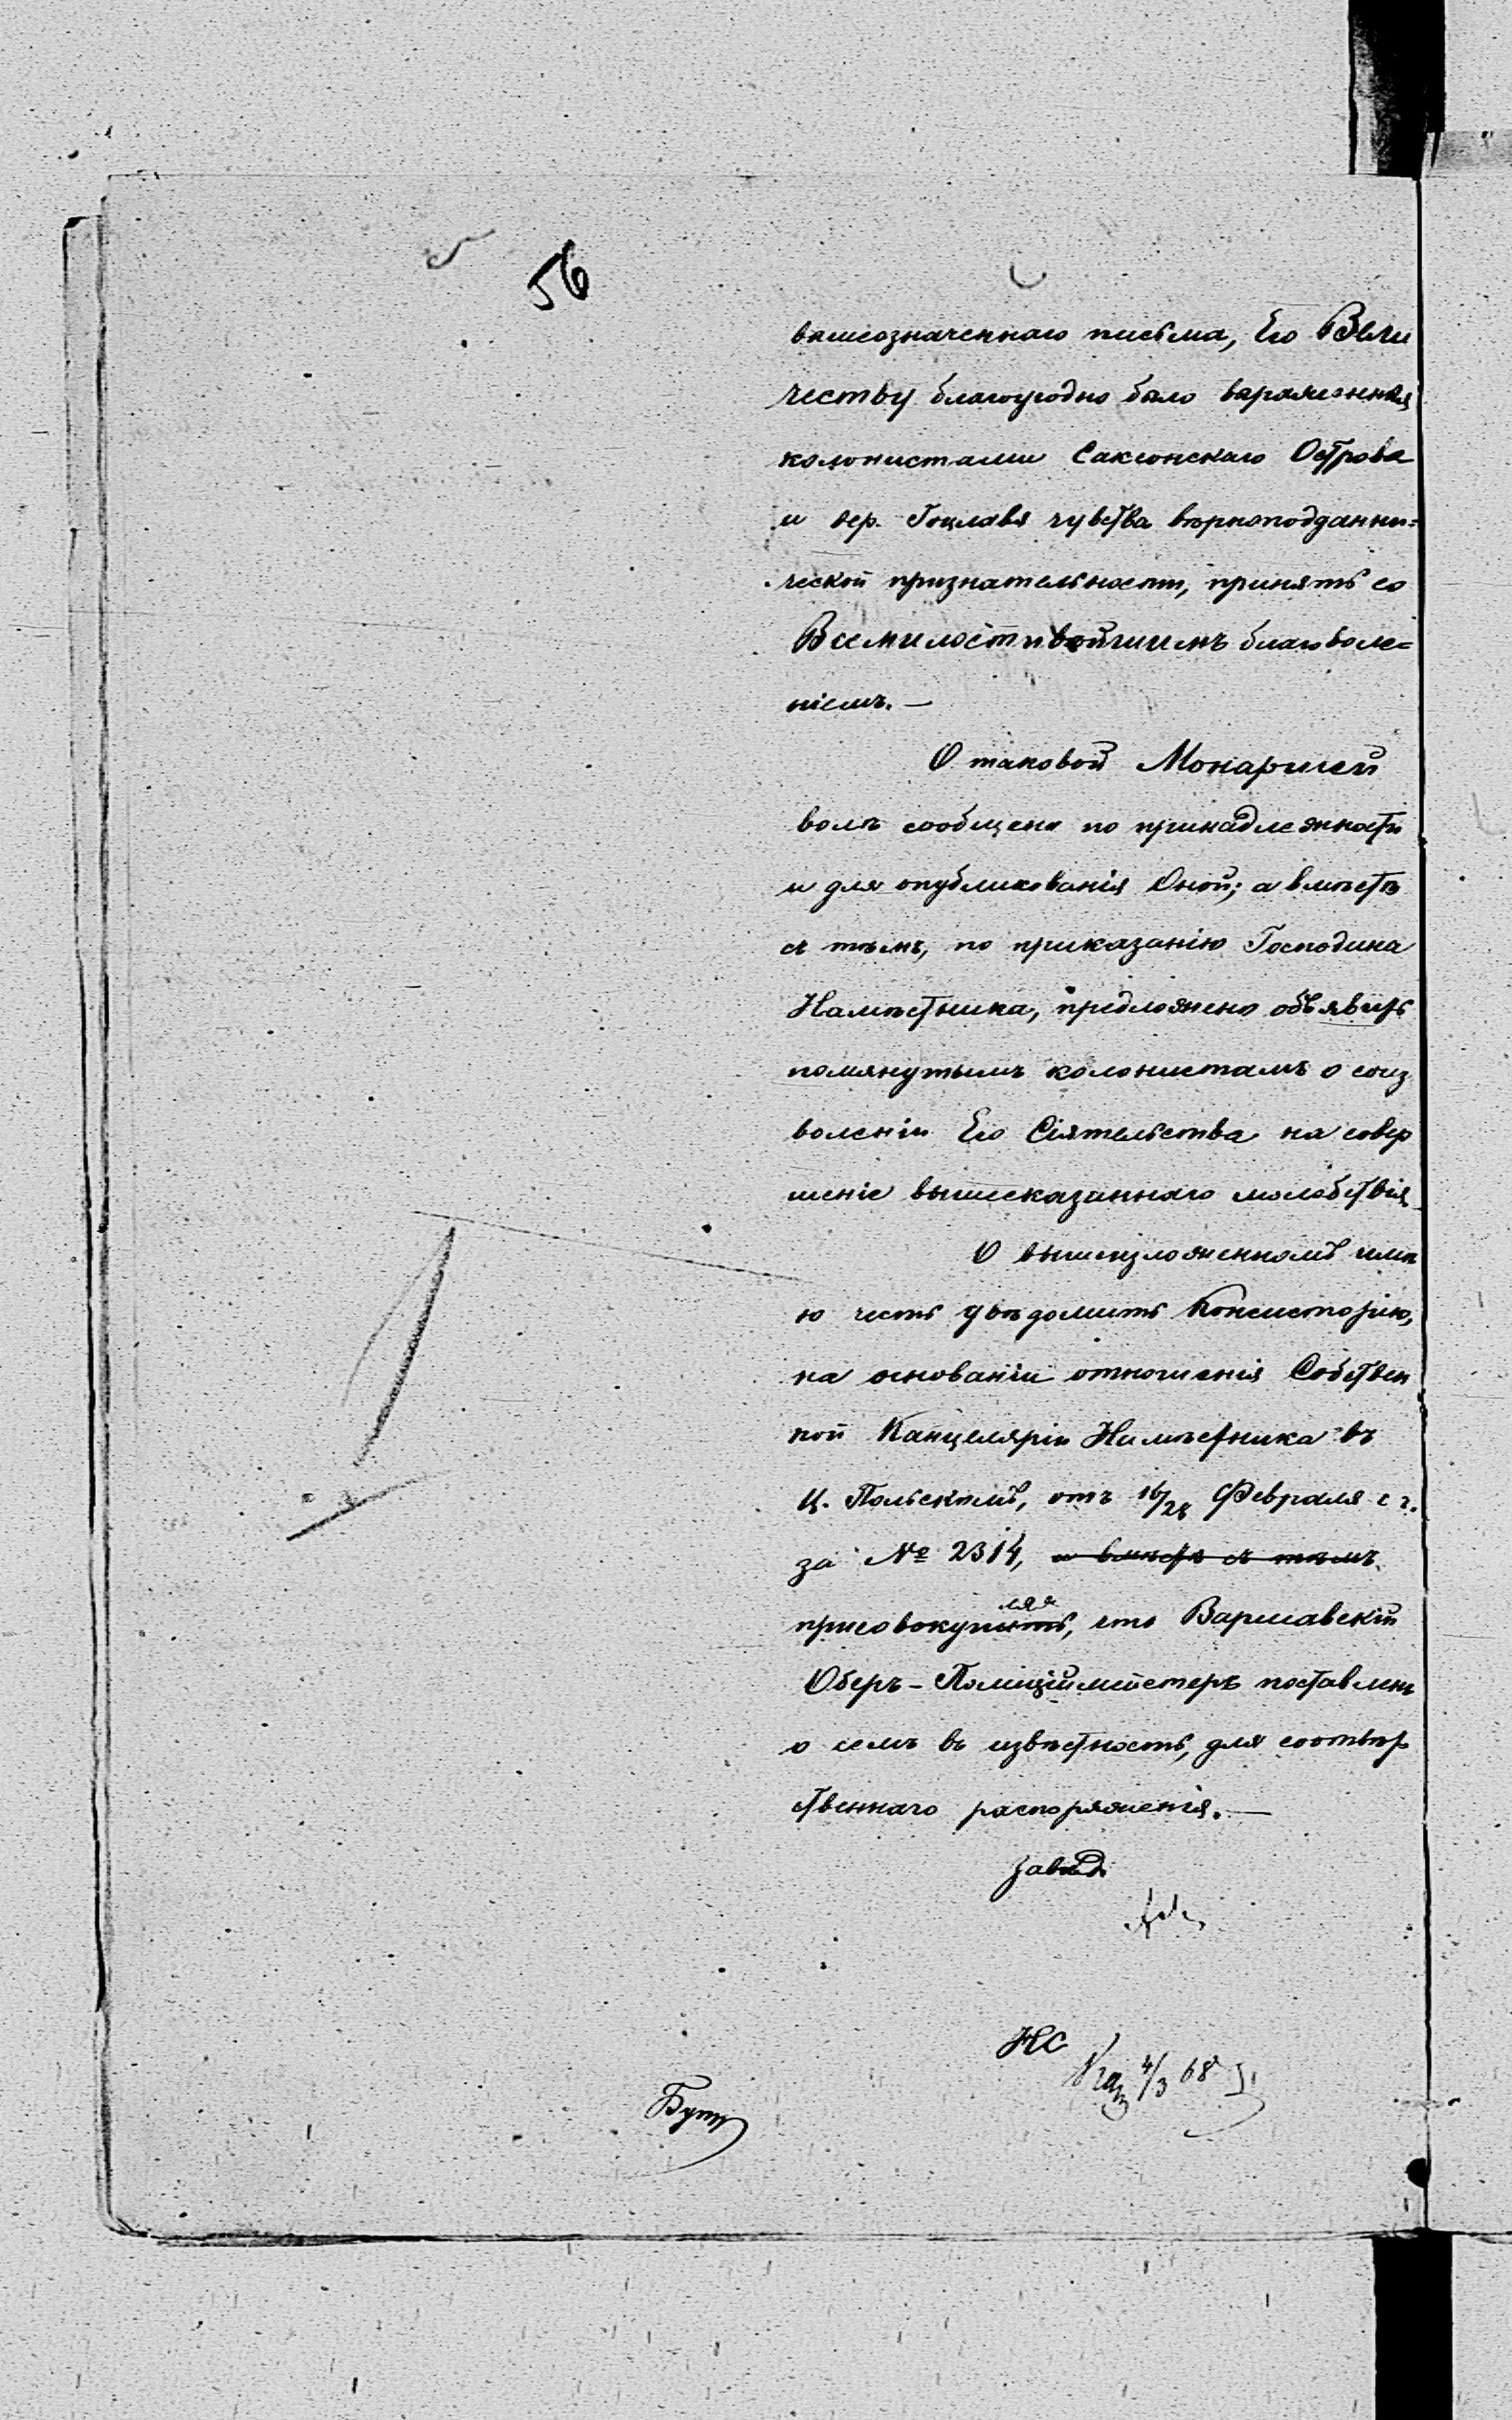 56
вышеозначеннаго письма, Его Вели
честву благоугодно было выраженныя
колонистами Саксонскаго Острова
и дер. Гоцлавя чувства вѣрноподданни=
ческой признательности, принять со
Всемилостивѣйшимъ благоволе=
ніемъ.—
О таковой Монаршей
волѣ сообщено по принадлежности
и для опубликованія Оной; а вмѣстѣ
съ тѣмъ, по приказанію Господина
Намѣстника, предложено объявить
помянутымъ колонистамъ о соиз
воленіи Его Сіятельства на совер
шеніе вышесказаннаго молебствія
О вышеизложенномъ имѣ
ю честь увѣдомить Консисторію,
на основаніи отношенія Собствен
ной Канцеляріи Намѣстника въ
Ц. Польскомъ, отъ 16/28 Февраля с. г.
за № 2314, и вмѣстѣ съ тѣмъ
ляя
присовокупить, что Варшавскій
Оберъ-Полиціймейстеръ поставленъ
о семъ въ извѣстность, для соотвѣт
ственнаго распоряженія.—
Завѣд.
НС
4/3 68